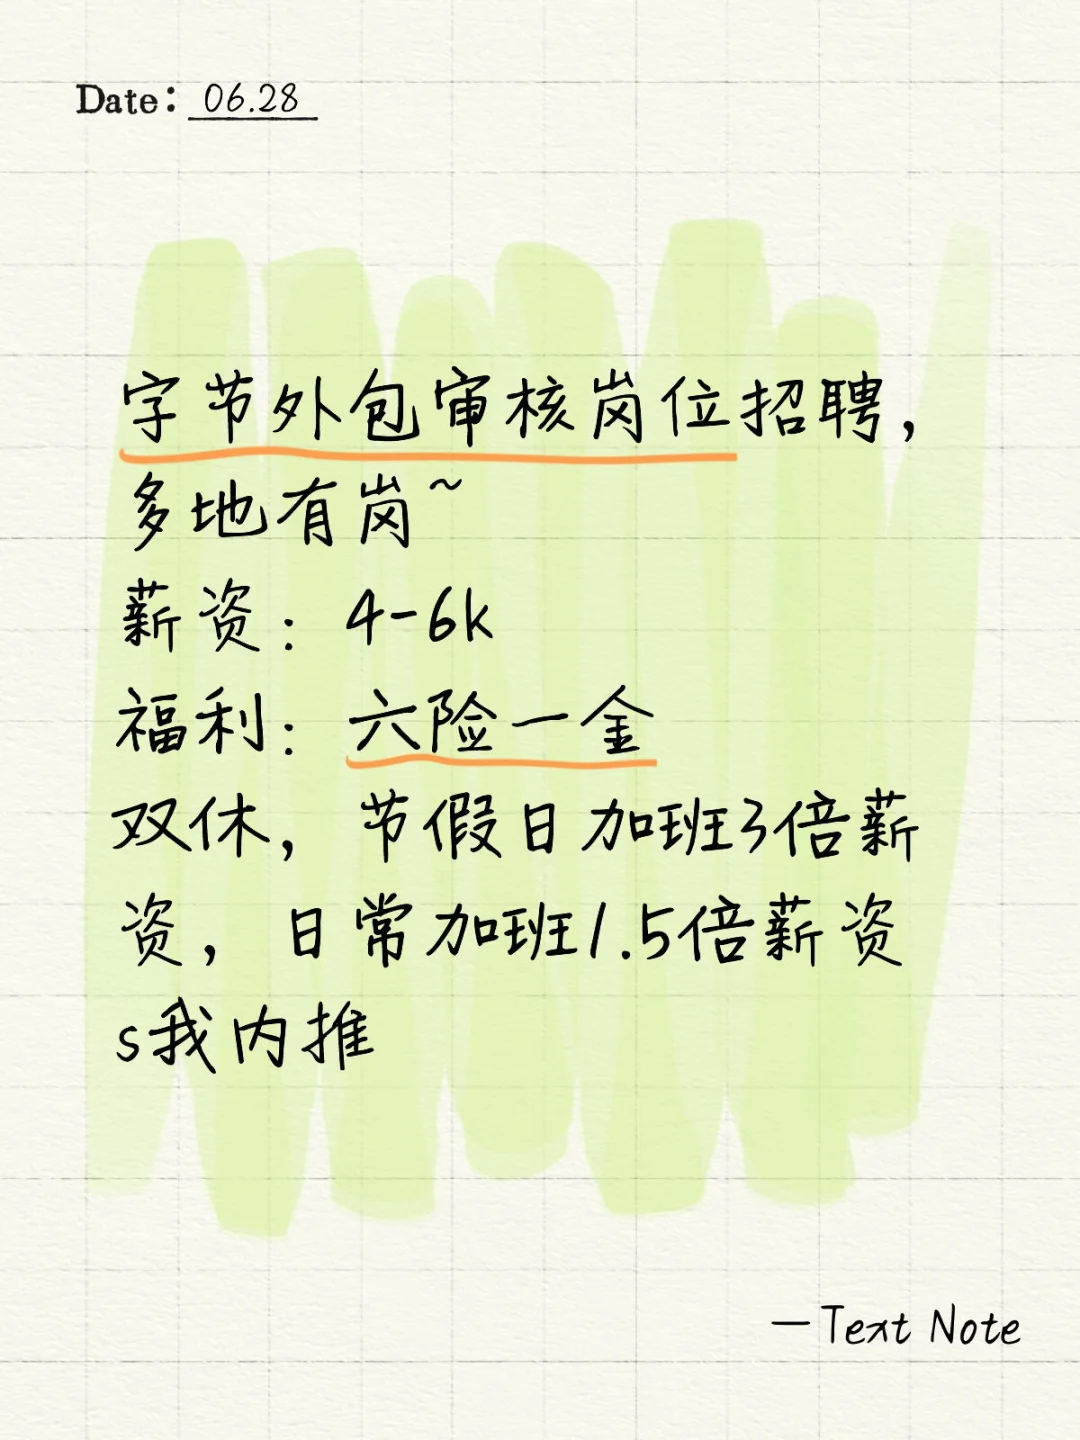 Date: 06.28
字节外包审核岗位招聘，
多地有岗~
薪资：4-6k
福利：六险一金
双休，节假日加班3倍薪
资，日常加班1.5倍薪资
s我内推
—Text Note